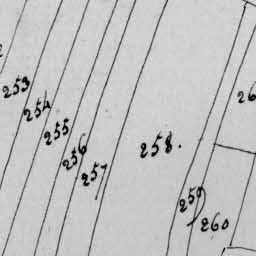 253
254
255
256
257
258.
259
260